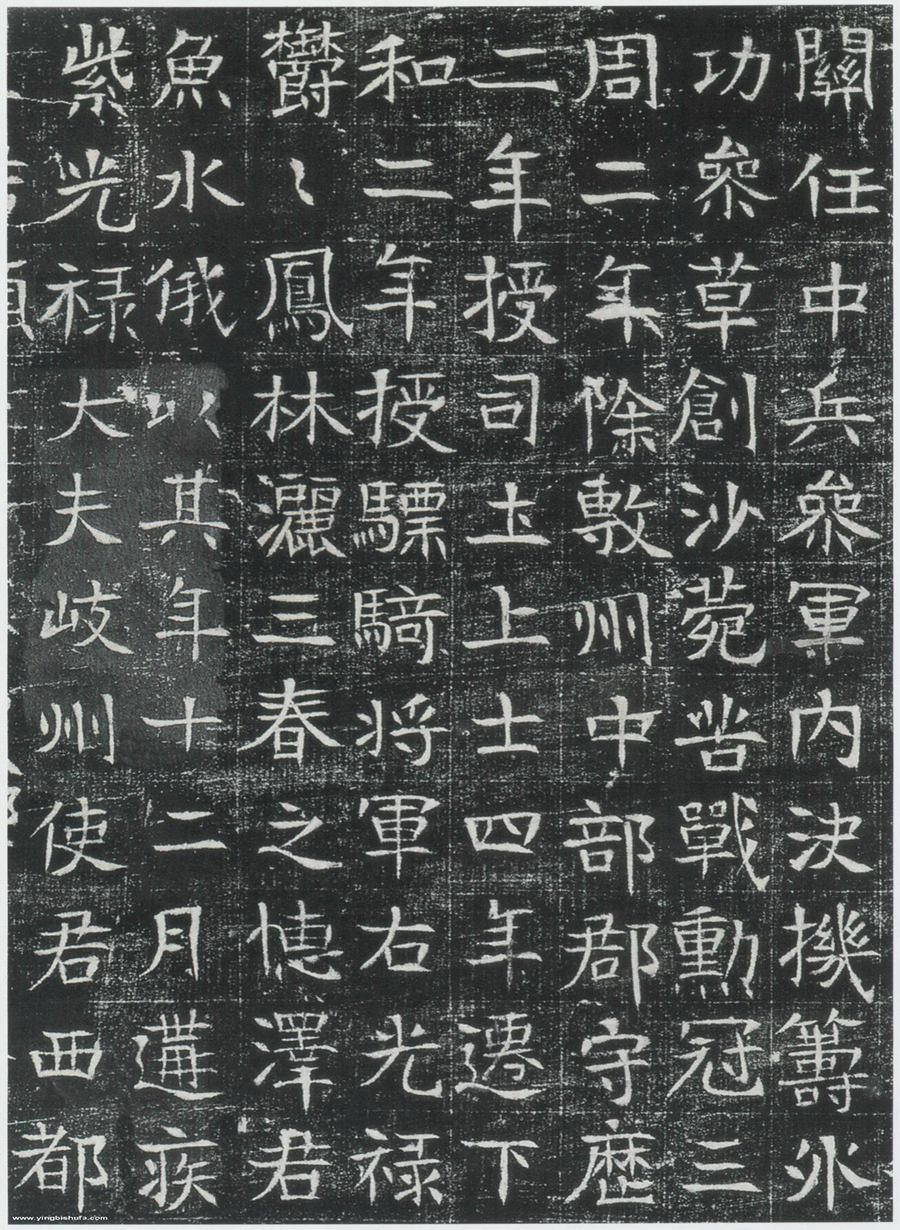 關任中兵叅軍内決機籌外
功叅草創沙菀苦戰勳冠三
周二年除敷州中部郡守歷
二年授司土上士四年遷下
和二年授驃騎将軍右光禄
鬱〻鳳林灑三春之德澤君
魚水俄以其年十二月遘疾
紫光禄大夫岐州使君西都
www.yingbishufa.com